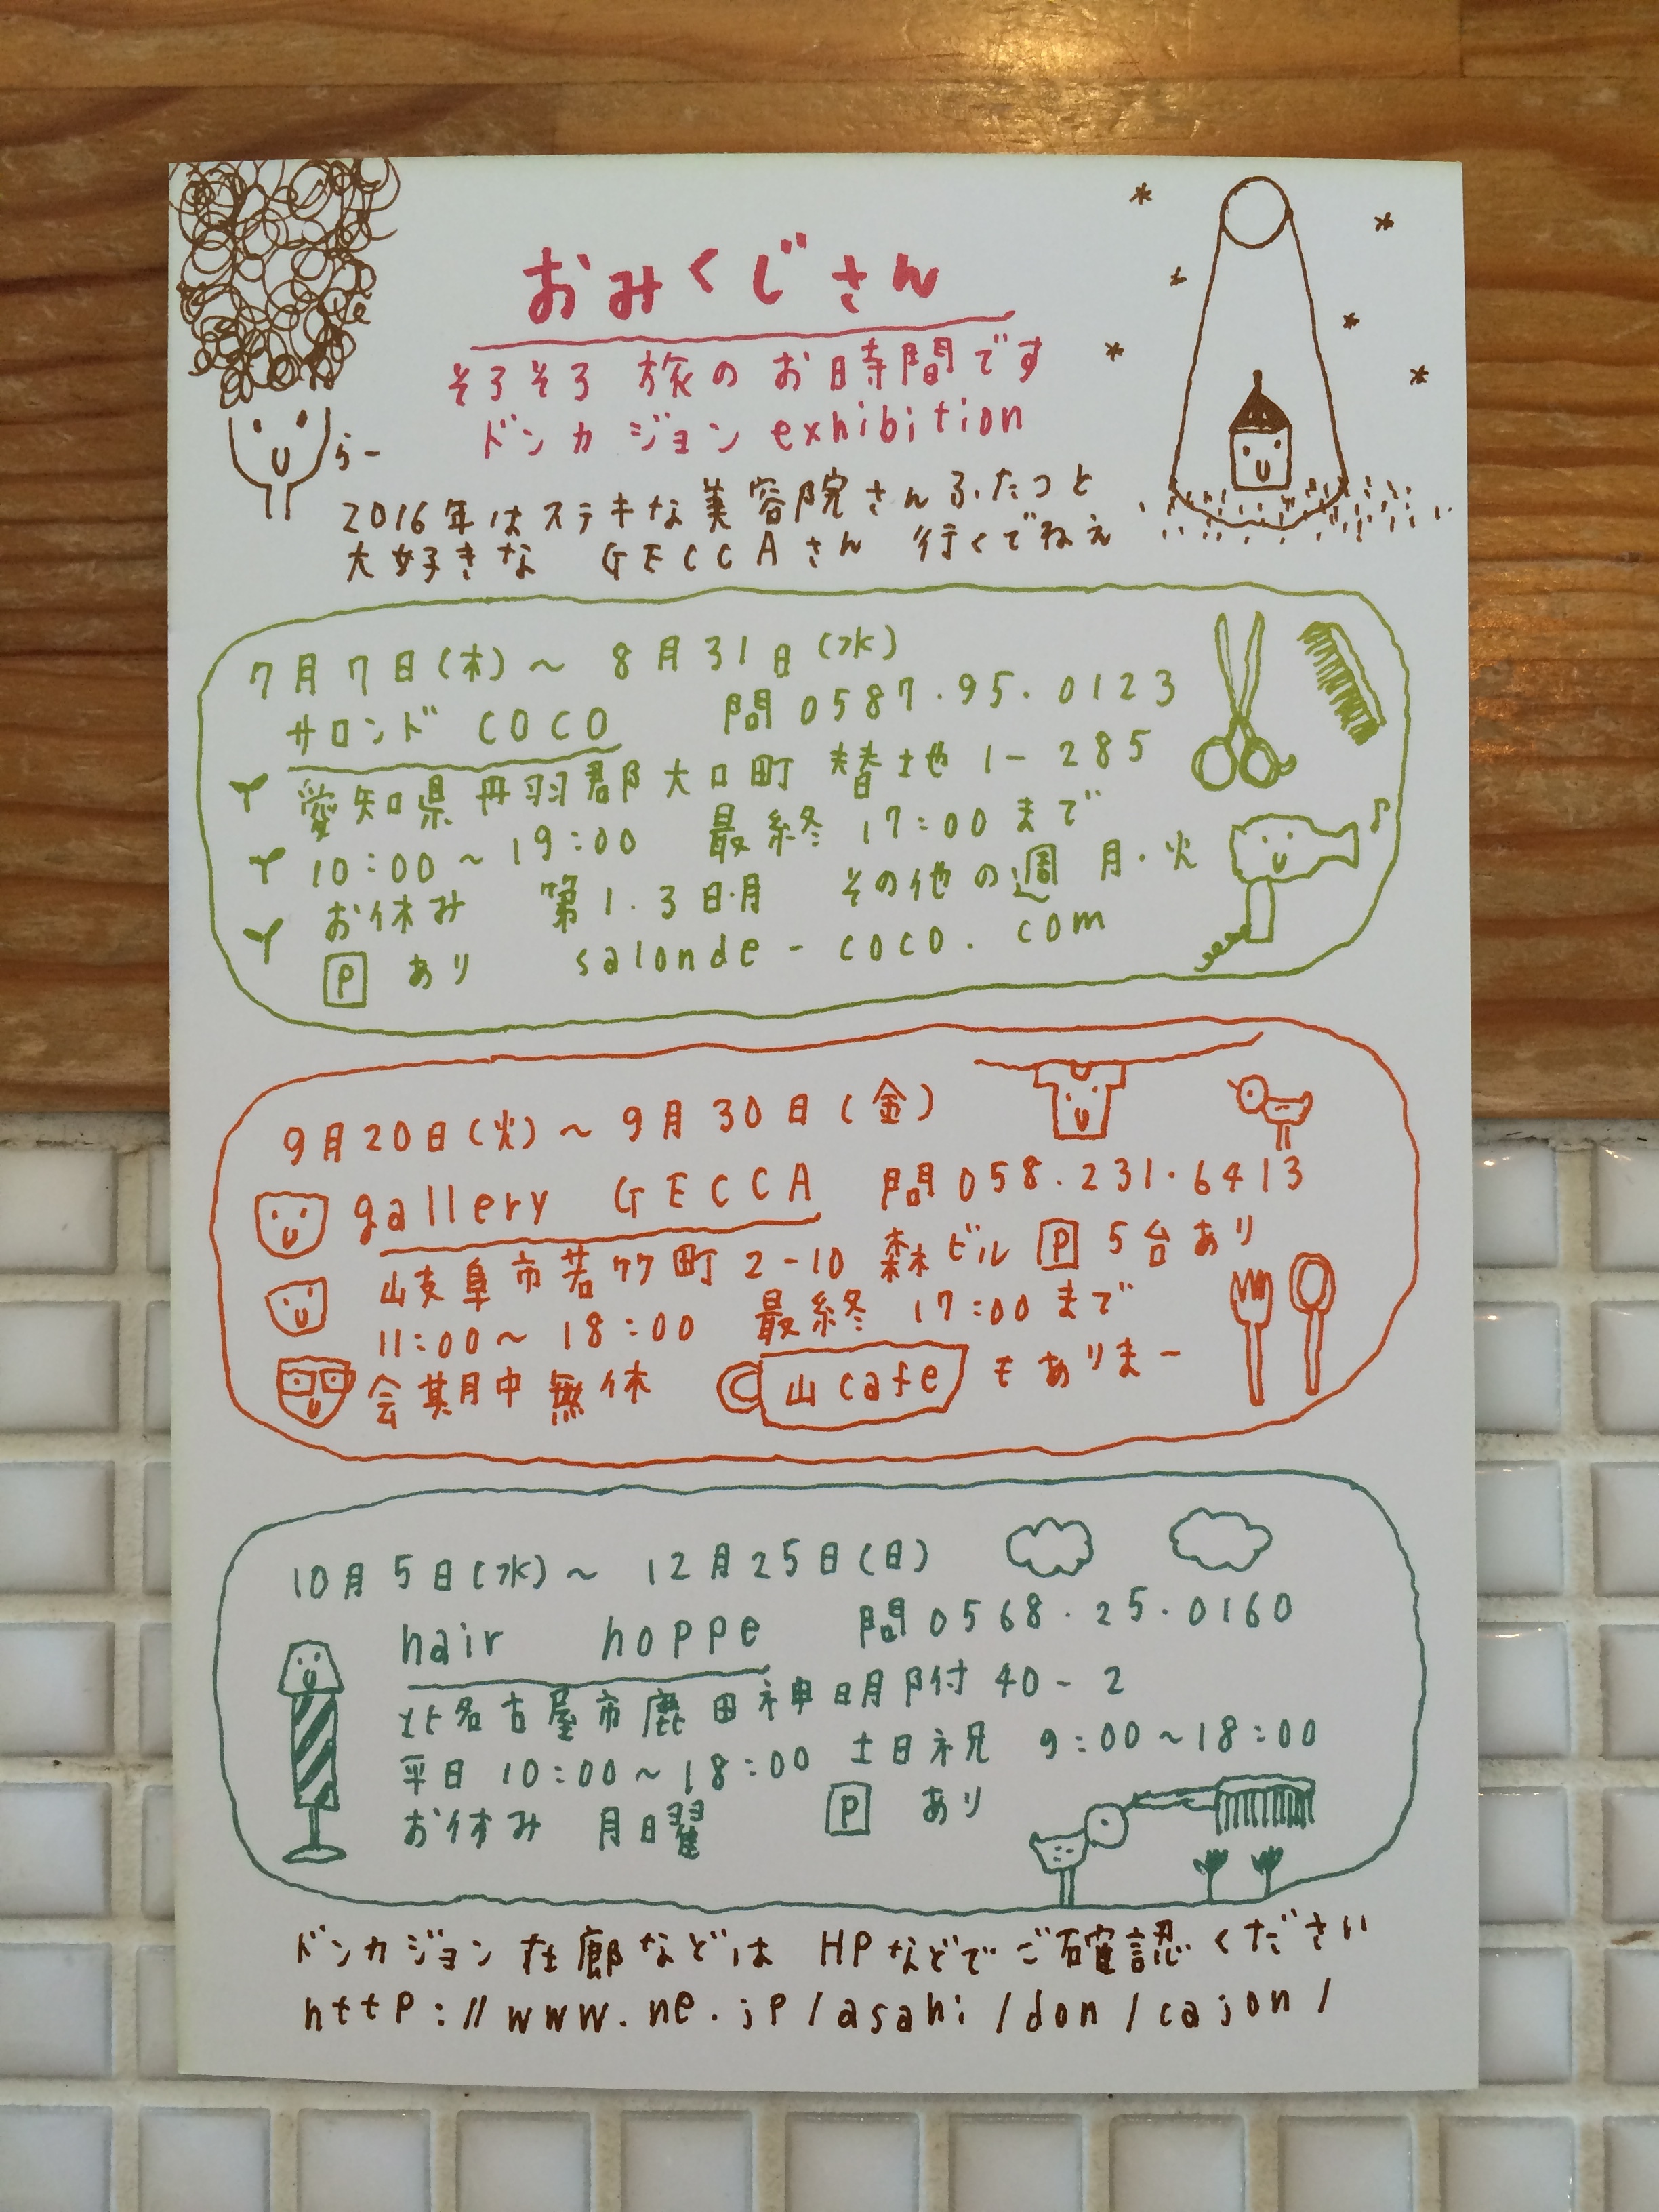 おみくじさん
そろそろ 旅の お時間です
ドンカジョン exhibition
らー
2016年は ステキな 美容院さん ふたつと
大好きな GECCAさん 行くでねぇ
7月7日(木)～8月31日(水)
サロンド COCO 問0587.95.0123
愛知県丹羽郡大口町 替地1-285
10:00～19:00 最終 17:00まで
お休み 第1.3日・月 その他の週 月・火
P あり salonde-coco.com
9月20日(火)～9月30日(金)
gallery GECCA 問058.231.6413
岐阜市若竹町2-10 森ビル P 5台あり
11:00～18:00 最終 17:00まで
会期中無休 山cafe もありまー
10月5日(水)～12月25日(日)
hair hoppe 問0568.25.0160
北名古屋市鹿田神明附40-2
平日 10:00～18:00 土日祝 9:00～18:00
お休み 月曜 P あり
ドンカジョン在廊などは HPなどでご確認ください
http://www.ne.jp/asahi/don/cajon/